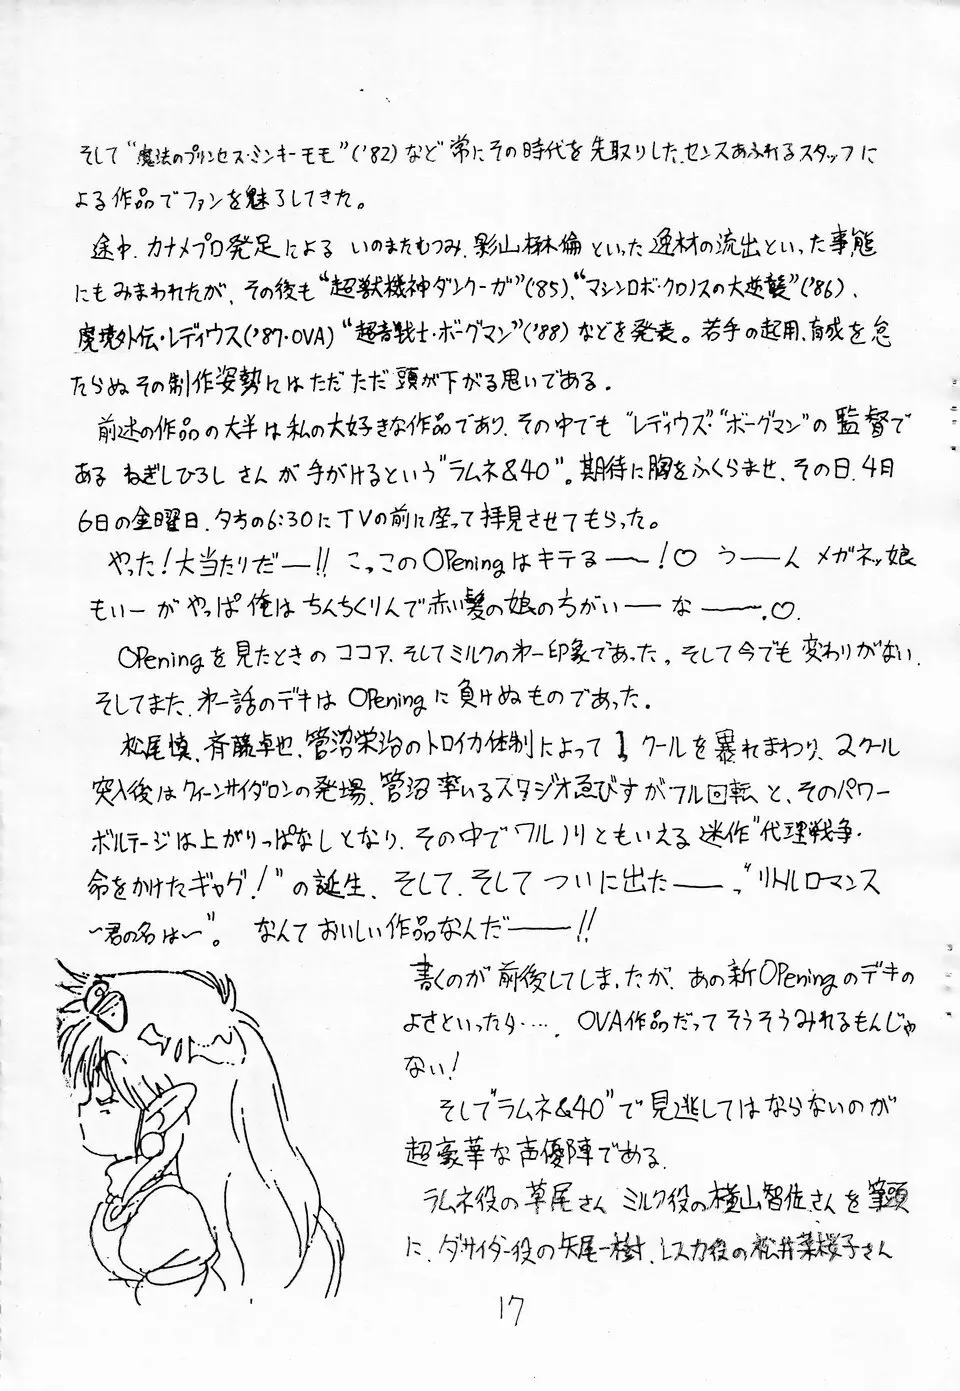 そして“魔法のプリンセス・ミンキーモモ”('82)など常にその時代を先取りした、センスあふれるスタッフに
よる作品でファンを魅了してきた。
途中、カナメプロ発足による いのまたむつみ、影山楙倫といった逸材の流出といった事態
にもみまわれたが、その後も“超獣機神ダンクーガ”('85)、“マシンロボ・クロノスの大逆襲”('86)、
魔境外伝・レディウス('87・OVA)“超音戦士・ボーグマン”('88)などを発表。若手の起用、育成を怠
たらぬその制作姿勢にはただただ頭が下がる思いである。
前述の作品の大半は私の大好きな作品であり、その中でも“レディウス”“ボーグマン”の監督で
ある ねぎしひろし さんが手がけるという“ラムネ&40”。期待に胸をふくらませ、その日、4月
6日の金曜日、夕方の6:30にTVの前に座って拝見させてもらった。
やった!大当たりだー!! こっこのOPeningはキテるー〜!♡ うーーん メガネッ娘
もいーがやっぱ俺はちんちくりんで赤い髪の娘の方がいーーなーー〜.♡.
OPeningを見たときのココア、そしてミルクの第一印象であった。そして今でも変わりがない。
そしてまた、第一話のデキはOPeningに負けぬものであった。
松尾慎、斉藤卓也、管沼栄治のトロイカ体制によって1クールを暴れまわり、2クール
突入後はクィーンサイダロンの登場、管沼率いるスタジオゑびすがフル回転と、そのパワー
ボルテージは上がりっぱなしとなり、その中でワルノリともいえる迷作“代理戦争・
命をかけたギャグ!”の誕生、そして、そしてついに出たーー“リトルロマンス
〜君の名は〜”。なんておいしい作品なんだーー!!
書くのが前後してしまったが、あの新OPeningのデキの
よさといったら‥‥、OVA作品だってそうそうみれるもんじゃ
ない!
そして“ラムネ&40”で見逃してはならないのが
超豪華な声優陣である。
ラムネ役の草尾さん ミルク役の横山智佐さんを筆頭
に、ダサイダー役の矢尾一樹、レスカ役の松井菜桜子さん
17